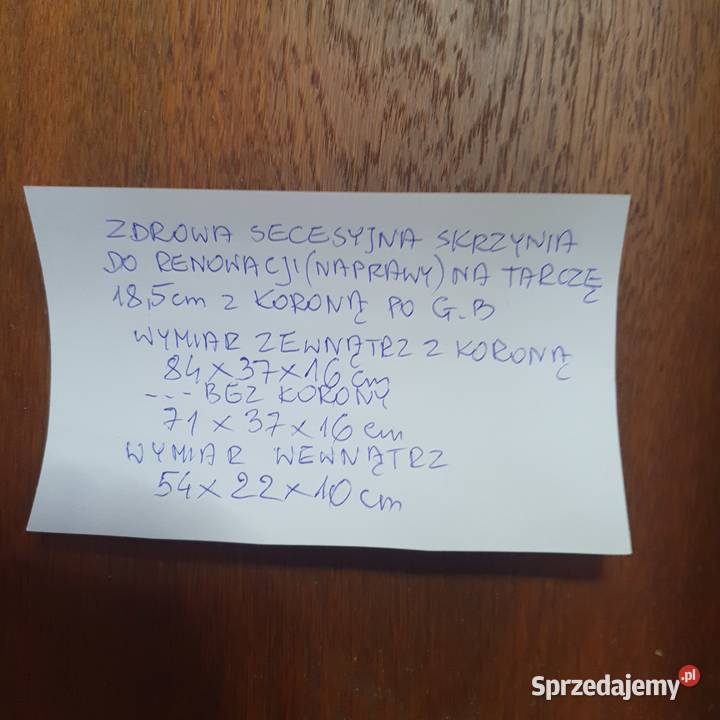 ZDROWA SECESYJNA SKRZYNIA
DO RENOWACJI (NAPRAWY) NA TARCZĘ
18,5cm z KORONĄ PO G.B
WYMIAR ZEWNĄTRZ Z KORONĄ
84 x 37 x 16 cm
--- BEZ KORONY
71 x 37 x 16 cm
WYMIAR WEWNĄTRZ
54 x 22 x 10 cm
Sprzedajemy.pl